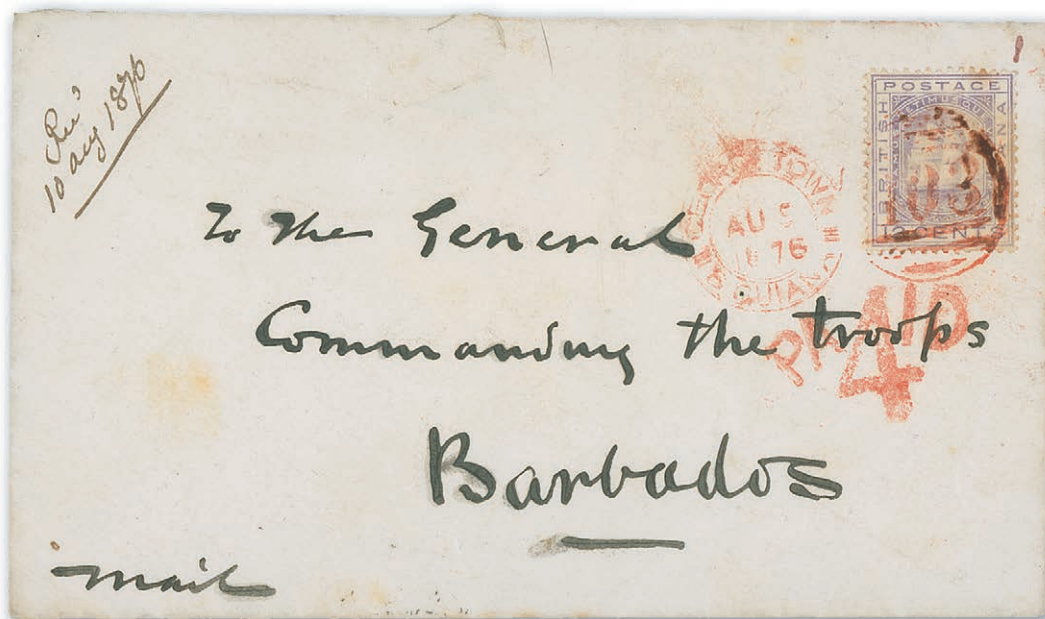 Rec'd
10 aug 1876
POSTAGE
BRITISH
12 CENTS
TOWN
AU 5
76
GUIANA
PAID
4
To the General
Commanding the troops
Barbados
mail